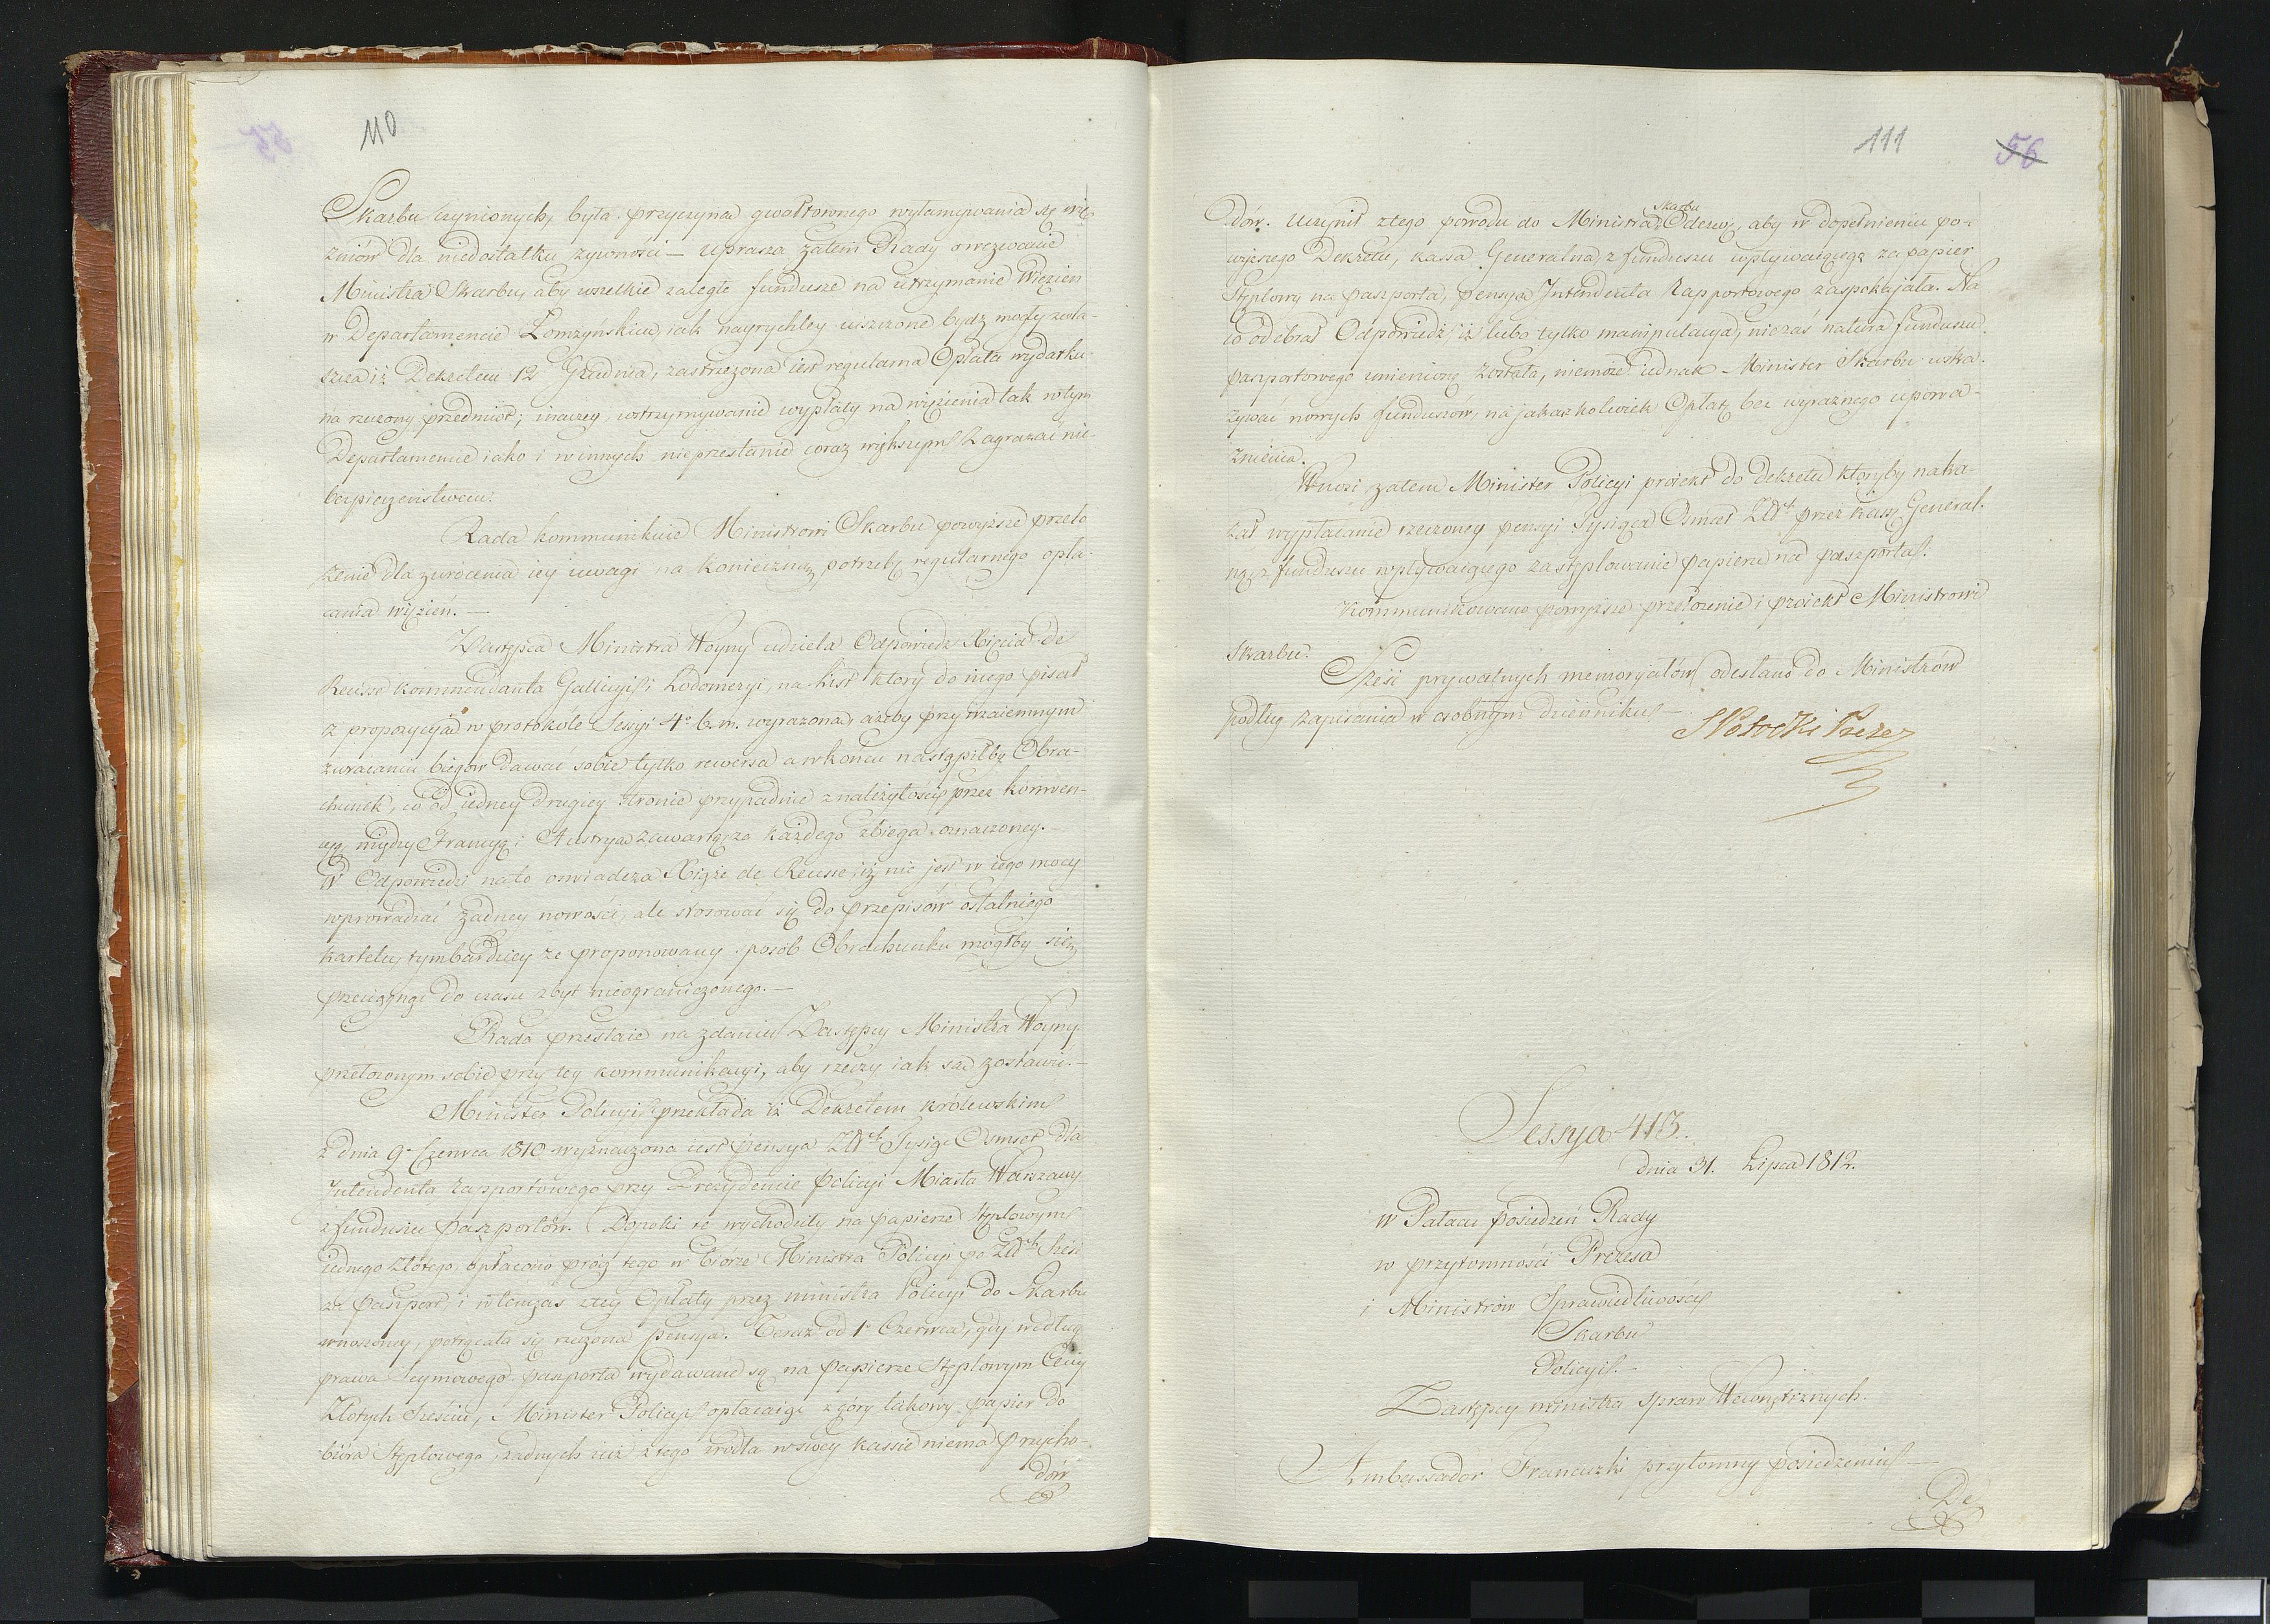 110
Skarbu czynionych, była przyczyną gwałtownego wyłamywania się wię-
zniów dla niedostatku żywności — uprasza zatem Rady o wezwanie
Ministra Skarbu, aby wszelkie zaległe fundusze na utrzymanie Więzien
w Departamencie Łomżyńskim, iak nayrychley uiszczone bydź mogły zwła-
szcza iż Dekretem 12 Grudnia, zastrzeżona iest regularna Opłata wydatku
na rzeczony przedmiot; inaczey, wstrzymywanie wypłaty na więzienia tak w tym
Departamencie iako i w innych nieprzestanie coraz większym zagrażać nie-
bezpieczeństwem.
Rada kommunikuie Ministrowi Skarbu powyższe przeło-
żenie dla zwrócenia iey uwagi na konieczną potrzebę regularnego opła-
cania więzień. —
Zastępca Ministra Woyny udziela Odpowiedz Xięcia de
Reusse kommendanta Gallicyi i Lodomeryi, na List który do niego pisał
z propozycyą w protokóle Sessyi 4º b. m. wyrażoną, ażeby przy wzaiemnym
zwracaniu biegów dawać sobie tylko rewersa a w końcu nastąpiłby Obra-
chunek, co od iedney drugiey stronie przypadnie z należytości przez konwen-
cyą między Francyą i Austryą zawartą za każdego zbiega oznaczoney. —
W Odpowiedzi na to oswiadcza Xiąże de Reusse, iż nie jest w iego mocy
wprowadzać żadney nowości, ale stosować się do przepisów ostatniego
kartelu, tymbardziey że proponowany sposób Obrachunku mógłby się
przeciągnąć do czasu zbyt nieograniczonego. —
Rada przestaie na zdaniu Zastępcy Ministra Woyny
przełożonym sobie przy tey kommunikacyi, aby rzeczy iak są zostawić. —
Minister Policyi przekłada iż Dekretem królewskim
z dnia 9º Czerwca 1810 wyznaczona iest pensya Złłch Tysiąc Osmset dla
Intendenta rapportowego przy Prezydencie policyi Miasta Warszawy
z funduszu paszportów. Dopoki te wychodziły na papierze stęplowym
iednego Złotego, opłacono prócz tego w biorze Ministra Policyi po Złłch Sześć
za paszport, i wtenczas z tey Opłaty przez ministra Policyi do Skarbu
wnoszoney, potrącała się rzeczona pensya. Teraz od 1º Czerwca, gdy według
prawa Seymowego paszporta wydawane są na papierze Stęplowym Ceny
Złotych Sześciu, Minister Policyi opłacaiąc z góry takowy papier do
biura Stęplowego, żadnych iuż z tego źrodła w swey kassie niema przycho-
dów
111
56
dów. Uczynił z tego powodu do Ministra Skarbu Odezwę, aby w dopełnieniu po-
wyższego Dekretu, kassa Generalna, z funduszu wpływaiącego za papier
Stęplowy na paszporta, pensyą Intendenta Rapportowego zaspokajała. Na
co odebrał Odpowiedź, iż lubo tylko manipulacya, nie zaś natura funduszu
paszportowego zmienioną została, niemoże iednak Minister Skarbu wska-
zywać nowych funduszów, na jakążkolwiek Opłatę bez wyraznego upowa-
żnienia.
Wnosi zatem Minister Policyi proiekt do dekretu któryby naka-
zał wypłacanie rzeczoney pensyi Tysiąca Osmset Złłch przez kassę General-
ną z funduszu wpływaiącego za stęplowanie papieru na paszporta.
Kommunikowano powyższe przełożenie i proiekt Ministrowi
Skarbu.
Sześć prywatnych memoryałów odesłano do Ministrów
podług zapisania w osobnym dzienniku.
S Potocki Prezes
Sessya 413.
dnia 31. Lipca 1812.
w Pałacu posiedzeń Rady
w przytomności Prezesa
i Ministrów Sprawiedliwości
Skarbu
Policyi. —
Zastępcy ministra spraw Wewnętrznych.
Ambassador Francuzki przytomny posiedzeniu —
De